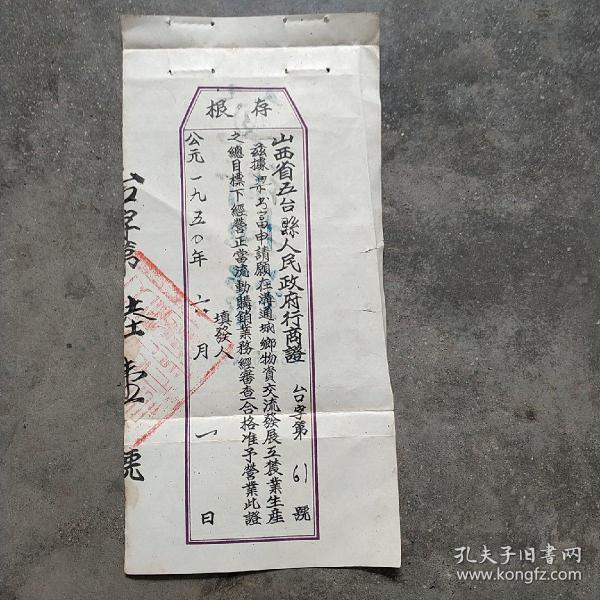 存根
山西省五台縣人民政府行商證
台字第61號
兹據 富申請願在溝通城鄉物資交流發展工農業生産
之總目標下經營正當流動購銷業務經審查合格准予營業此證
填發人
公元一九五〇年 月一日
台字第陸壹號
孔夫子旧书网
www.kongfz.com